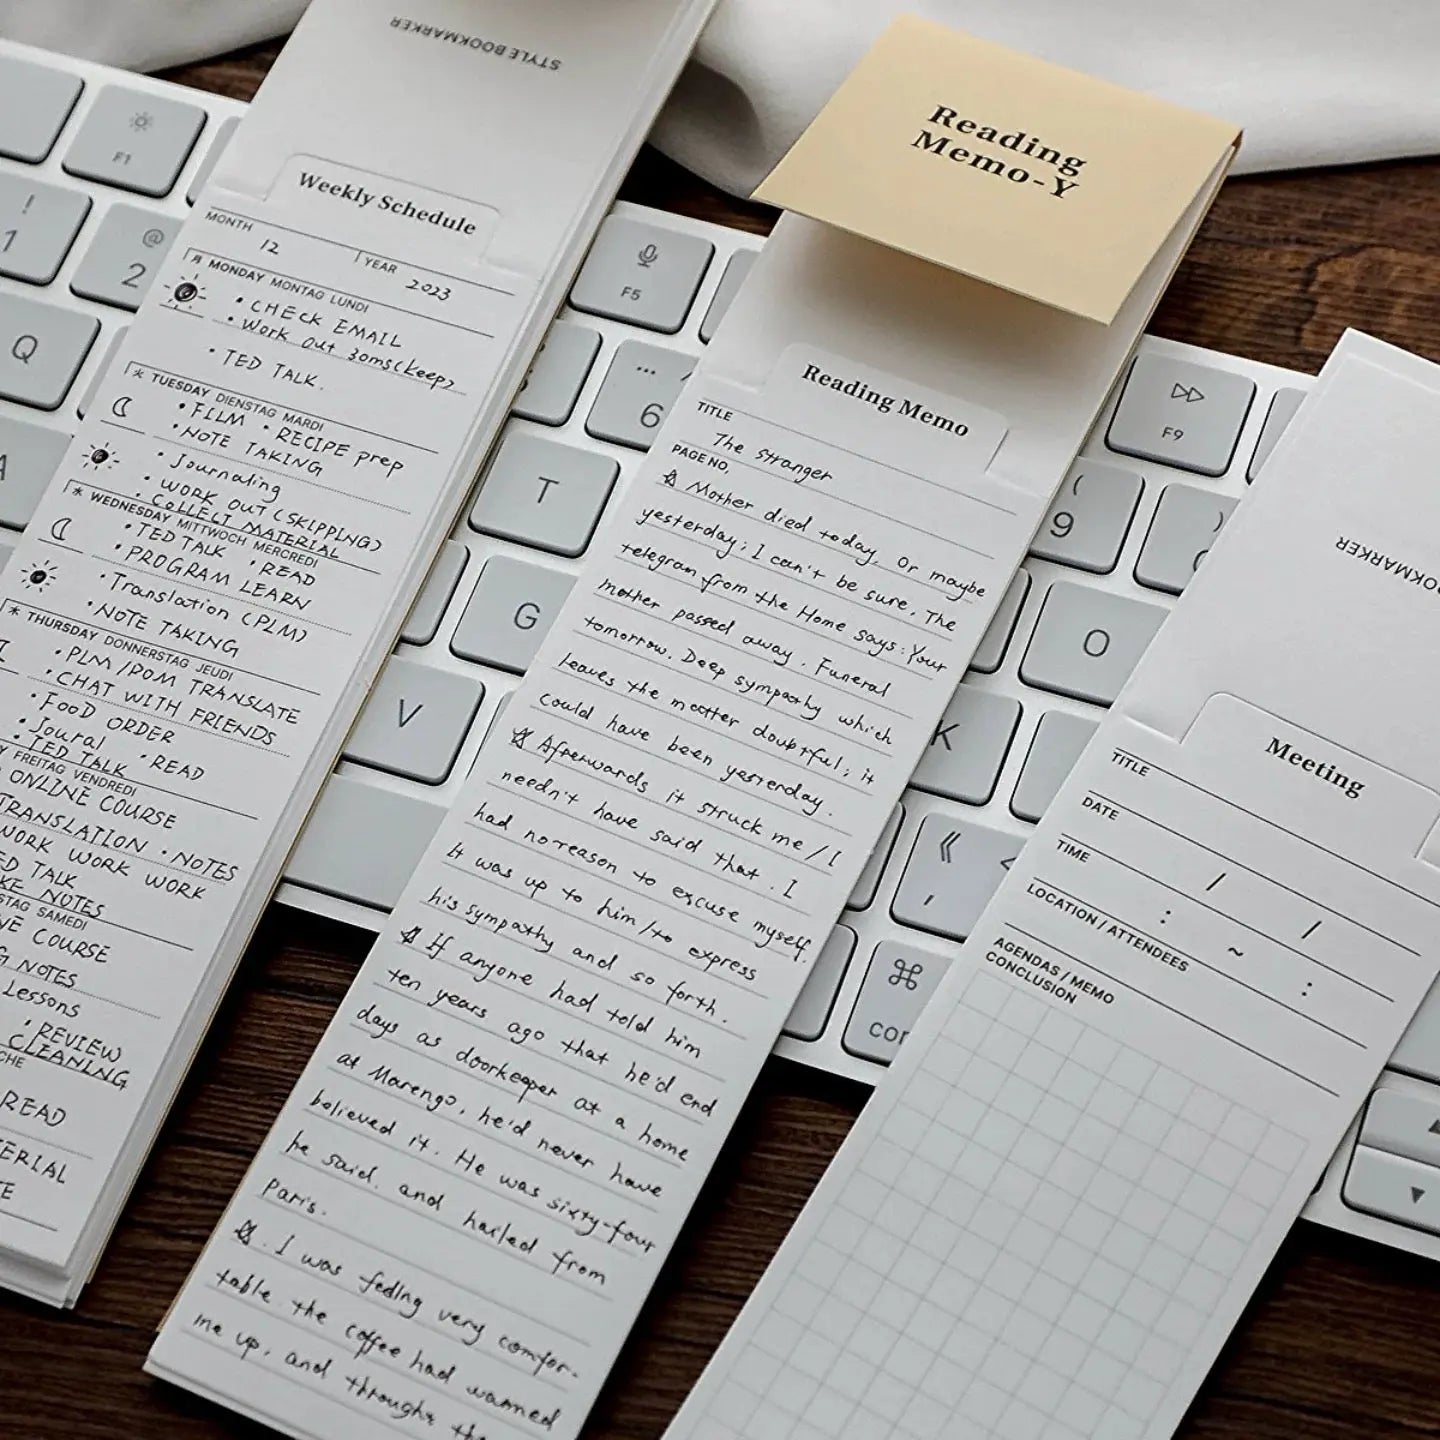 STYLE BOOKMARKER
Weekly Schedule
MONTH 12 YEAR 2023
月 MONDAY MONTAG LUNDI
• CHECK EMAIL
• Work out 30ms(keep)
• TED TALK.
TUESDAY DIENSTAG MARDI
• FILM • RECIPE prep
• NOTE TAKING
• Journaling
• WORK OUT (SKIPPING)
• COLLECT MATERIAL
WEDNESDAY MITTWOCH MERCREDI
• TED TALK • READ
• PROGRAM LEARN
• Translation (PLM)
• NOTE TAKING
THURSDAY DONNERSTAG JEUDI
• PLM/POM TRANSLATE
• CHAT WITH FRIENDS
• FOOD ORDER
• Joural • READ
• TED TALK
FREITAG VENDREDI
ONLINE COURSE
TRANSLATION • NOTES
WORK WORK WORK
TALK
NOTES
SAMEDI
COURSE
NOTES
Lessons
• REVIEW
CLEANING
READ
Reading
Memo-Y
Reading Memo
TITLE
The stranger
PAGE NO.
☆ Mother died today. Or maybe
yesterday; I can't be sure. The
telegram from the Home says: Your
mother passed away. Funeral
tomorrow. Deep sympathy which
leaves the matter doubtful; it
could have been yesterday.
☆ Afterwards it struck me / I
needn't have said that. I
had no reason to excuse myself.
It was up to him/to express
his sympathy and so forth.
☆ If anyone had told him
ten years ago that he'd end
days as doorkeeper at a home
at Marengo, he'd never have
believed it. He was sixty-four
he said, and hailed from
Paris.
☆. I was feeling very comfor-
table the coffee had warmed
me up, and through
Meeting
TITLE
DATE / /
TIME : ~ :
LOCATION / ATTENDEES
AGENDAS / MEMO
CONCLUSION
F1
!
1
@
2
Q
F5
6
T
G
V
F9
(
9
)
O
K
《
,
<
⌘